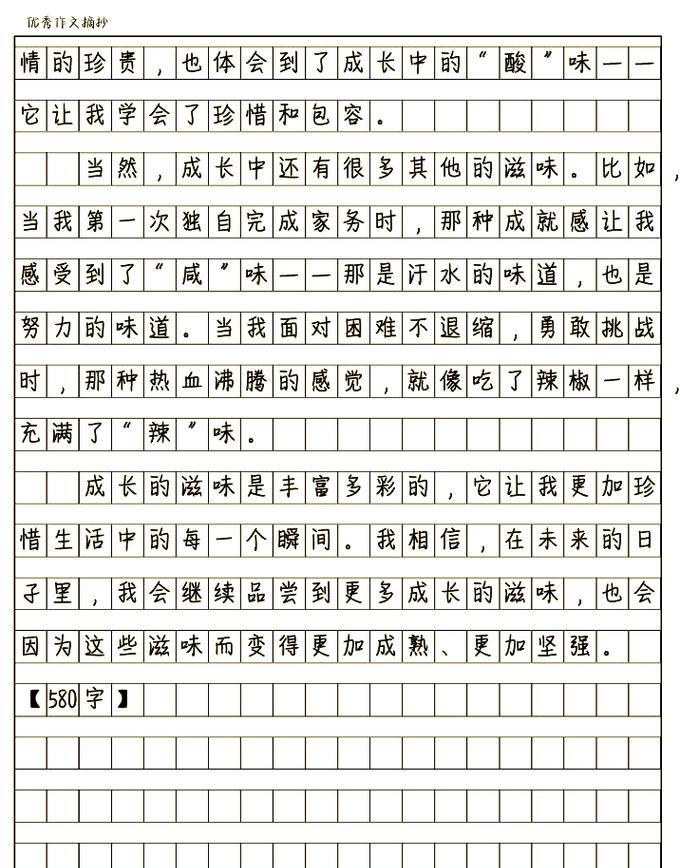 优秀作文摘抄
情的珍贵，也体会到了成长中的“酸”味——
它让我学会了珍惜和包容。
当然，成长中还有很多其他的滋味。比如，
当我第一次独自完成家务时，那种成就感让我
感受到了“咸”味——那是汗水的味道，也是
努力的味道。当我面对困难不退缩，勇敢挑战
时，那种热血沸腾的感觉，就像吃了辣椒一样，
充满了“辣”味。
成长的滋味是丰富多彩的，它让我更加珍
惜生活中的每一个瞬间。我相信，在未来的日
子里，我会继续品尝到更多成长的滋味，也会
因为这些滋味而变得更加成熟、更加坚强。
【580字】